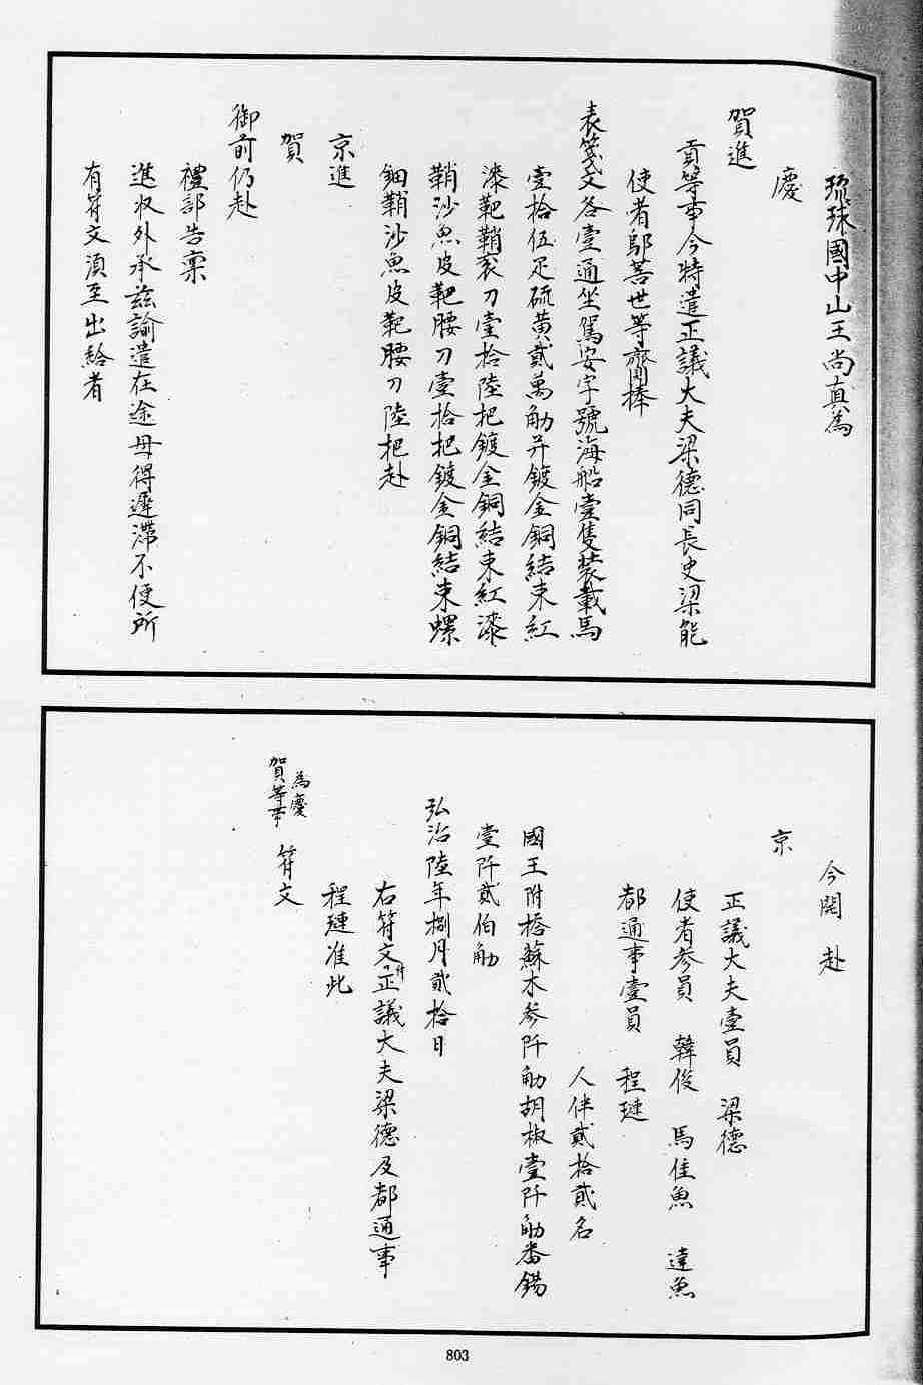 琉球國中山王尚真為
慶
賀進
貢等事今特遣正議大夫梁德同長史梁能
使者鄔菩世等齎捧
表箋文各壹通坐駕安字號海船壹隻裝載馬
壹拾伍疋硫黄貳萬觔并鍍金銅結束紅
漆靶鞘衮刀壹拾陸把鍍金銅結束紅漆
鞘沙魚皮靶腰刀壹拾把鍍金銅結束螺
鈿鞘沙魚皮靶腰刀陸把赴
京進
賀
御前仍赴
禮部告稟
進收外承兹諭遣在途毋得遲滯不便所
有符文湏至出給者
今開赴
京
正議大夫壹員 梁德
使者參員 韓俊 馬佳魚 達魚
都通事壹員 程璉
人伴貳拾貳名
國王附搭蘇木參阡觔胡椒壹阡觔番錫
壹阡貳伯觔
弘治陸年捌月貳拾日
右符文付正議大夫梁德及都通事
程璉准此
為慶
賀等事 符文
803